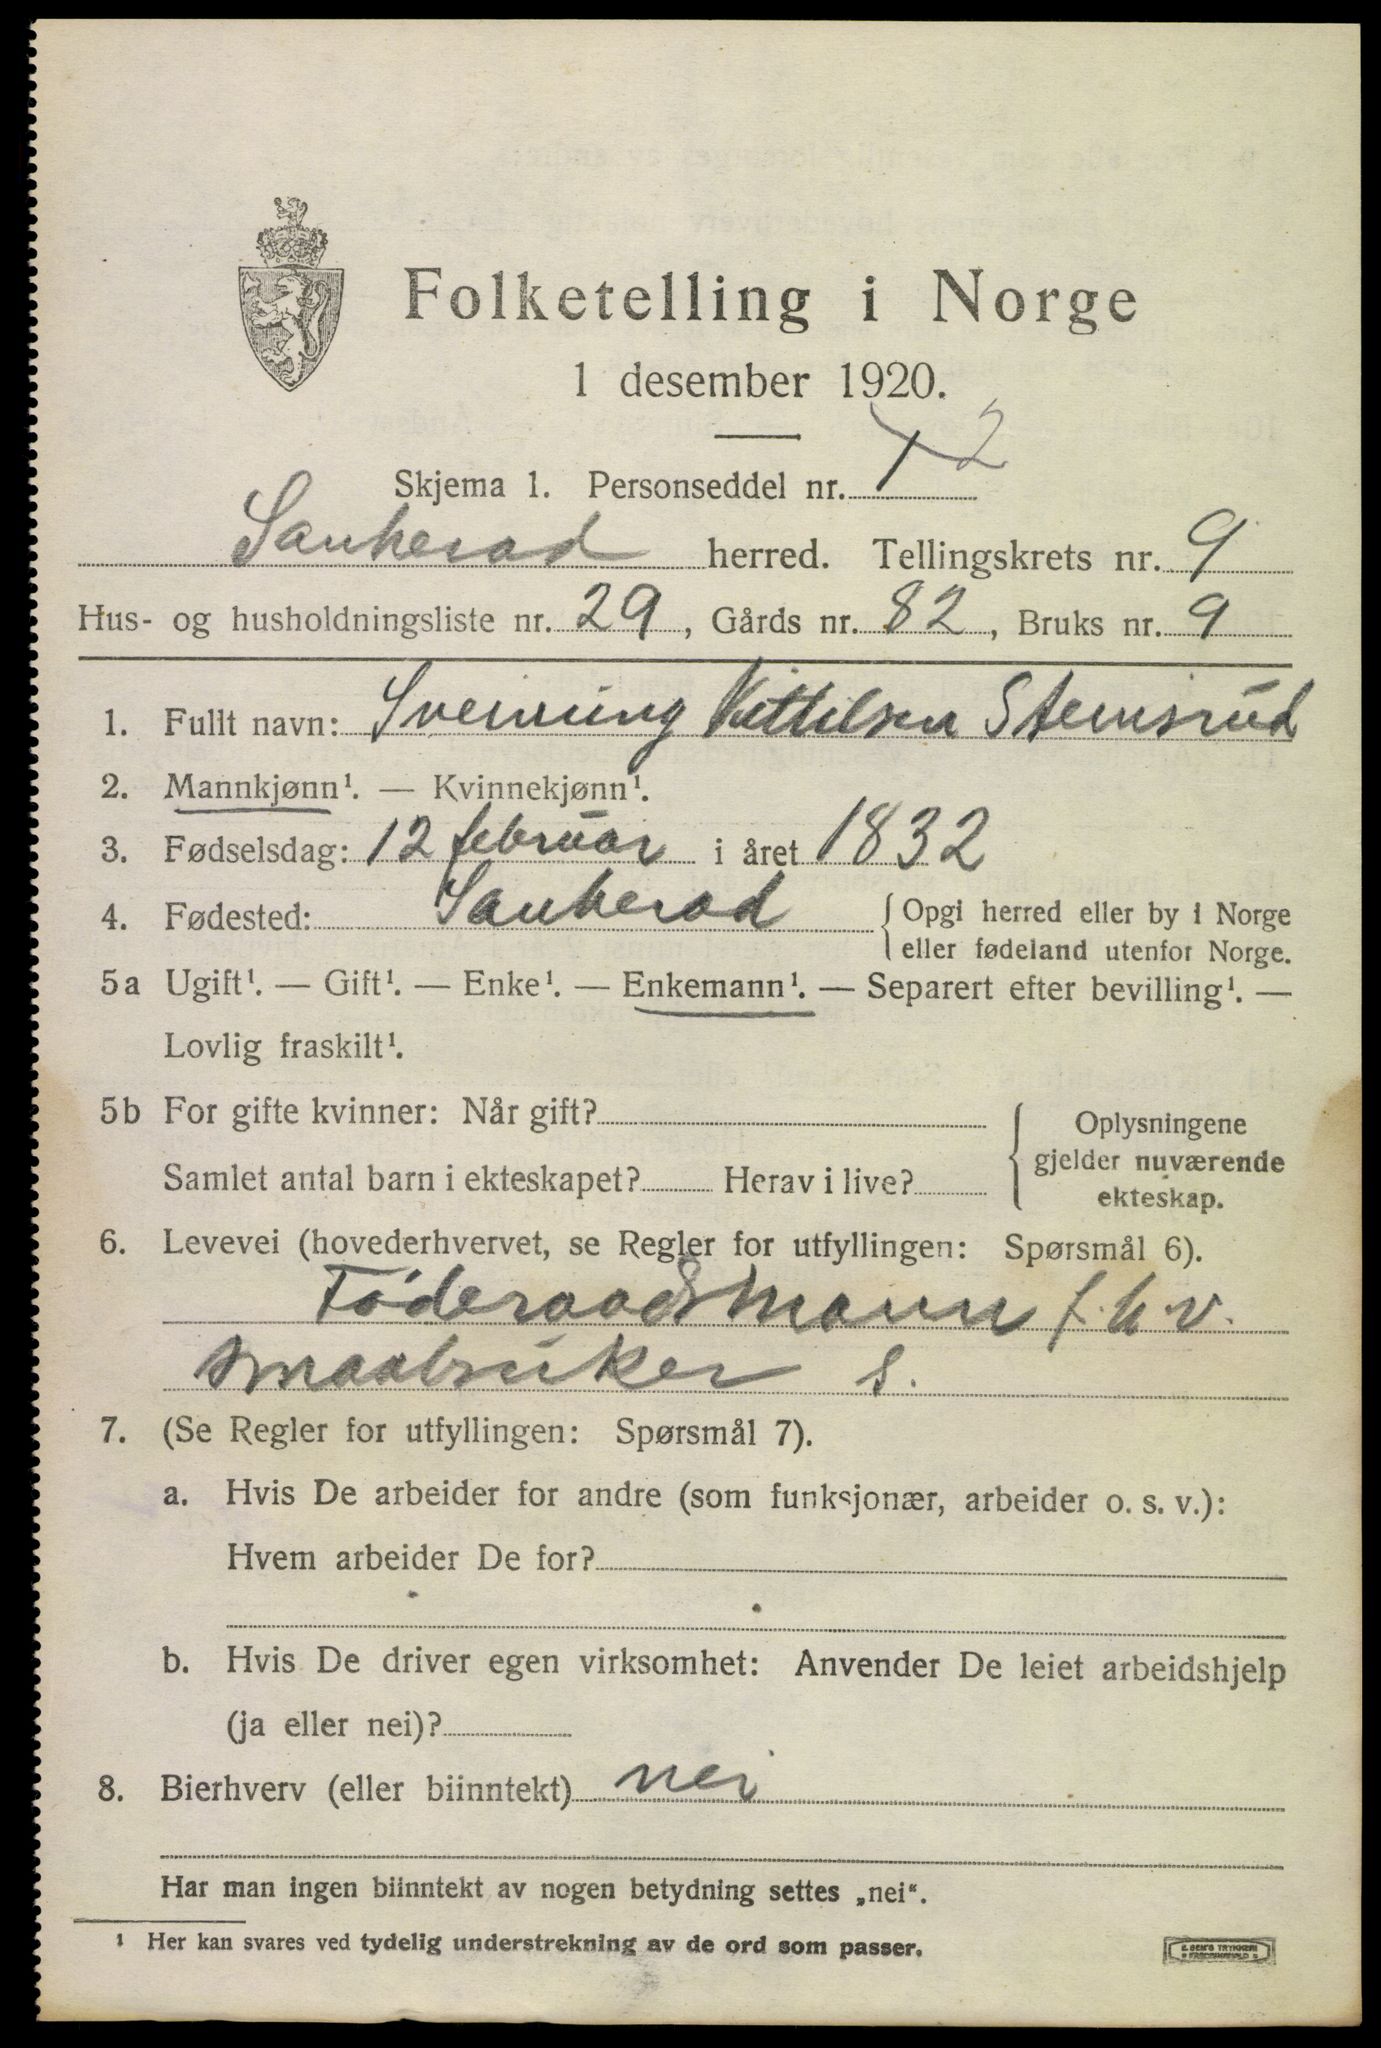 Folketelling i Norge
1 desember 1920.
Skjema 1. Personseddel nr. 1 2
Sauherad herred. Tellingskrets nr. 9
Hus- og husholdningsliste nr. 29, Gårds nr. 82, Bruks nr. 9
1. Fullt navn: Sveinung Kittilsen Stemsrud
2. Mannkjønn¹. — Kvinnekjønn¹.
3. Fødselsdag: 12 februar i året 1832
4. Fødested: Sauherad { Opgi herred eller by i Norge
eller fødeland utenfor Norge.
5a Ugift¹. — Gift¹. — Enke¹. — Enkemann¹. — Separert efter bevilling¹. —
Lovlig fraskilt¹.
5b For gifte kvinner: Når gift?
Samlet antal barn i ekteskapet? Herav i live?
Oplysningene
gjelder nuværende
ekteskap.
6. Levevei (hovederhvervet, se Regler for utfyllingen: Spørsmål 6).
Føderaadsmann f.h.v.
smaabruker s.
7. (Se Regler for utfyllingen: Spørsmål 7).
a. Hvis De arbeider for andre (som funksjonær, arbeider o. s. v.):
Hvem arbeider De for?
b. Hvis De driver egen virksomhet: Anvender De leiet arbeidshjelp
(ja eller nei)?
8. Bierhverv (eller biinntekt) nei
Har man ingen biinntekt av nogen betydning settes „nei“.
¹ Her kan svares ved tydelig understrekning av de ord som passer.
E. SEM'S TRYKKERI
FREDRIKSHALD